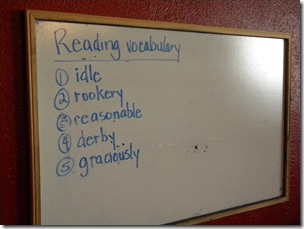 Reading vocabulary
① idle
② rookery
③ reasonable
④ derby
⑤ graciously